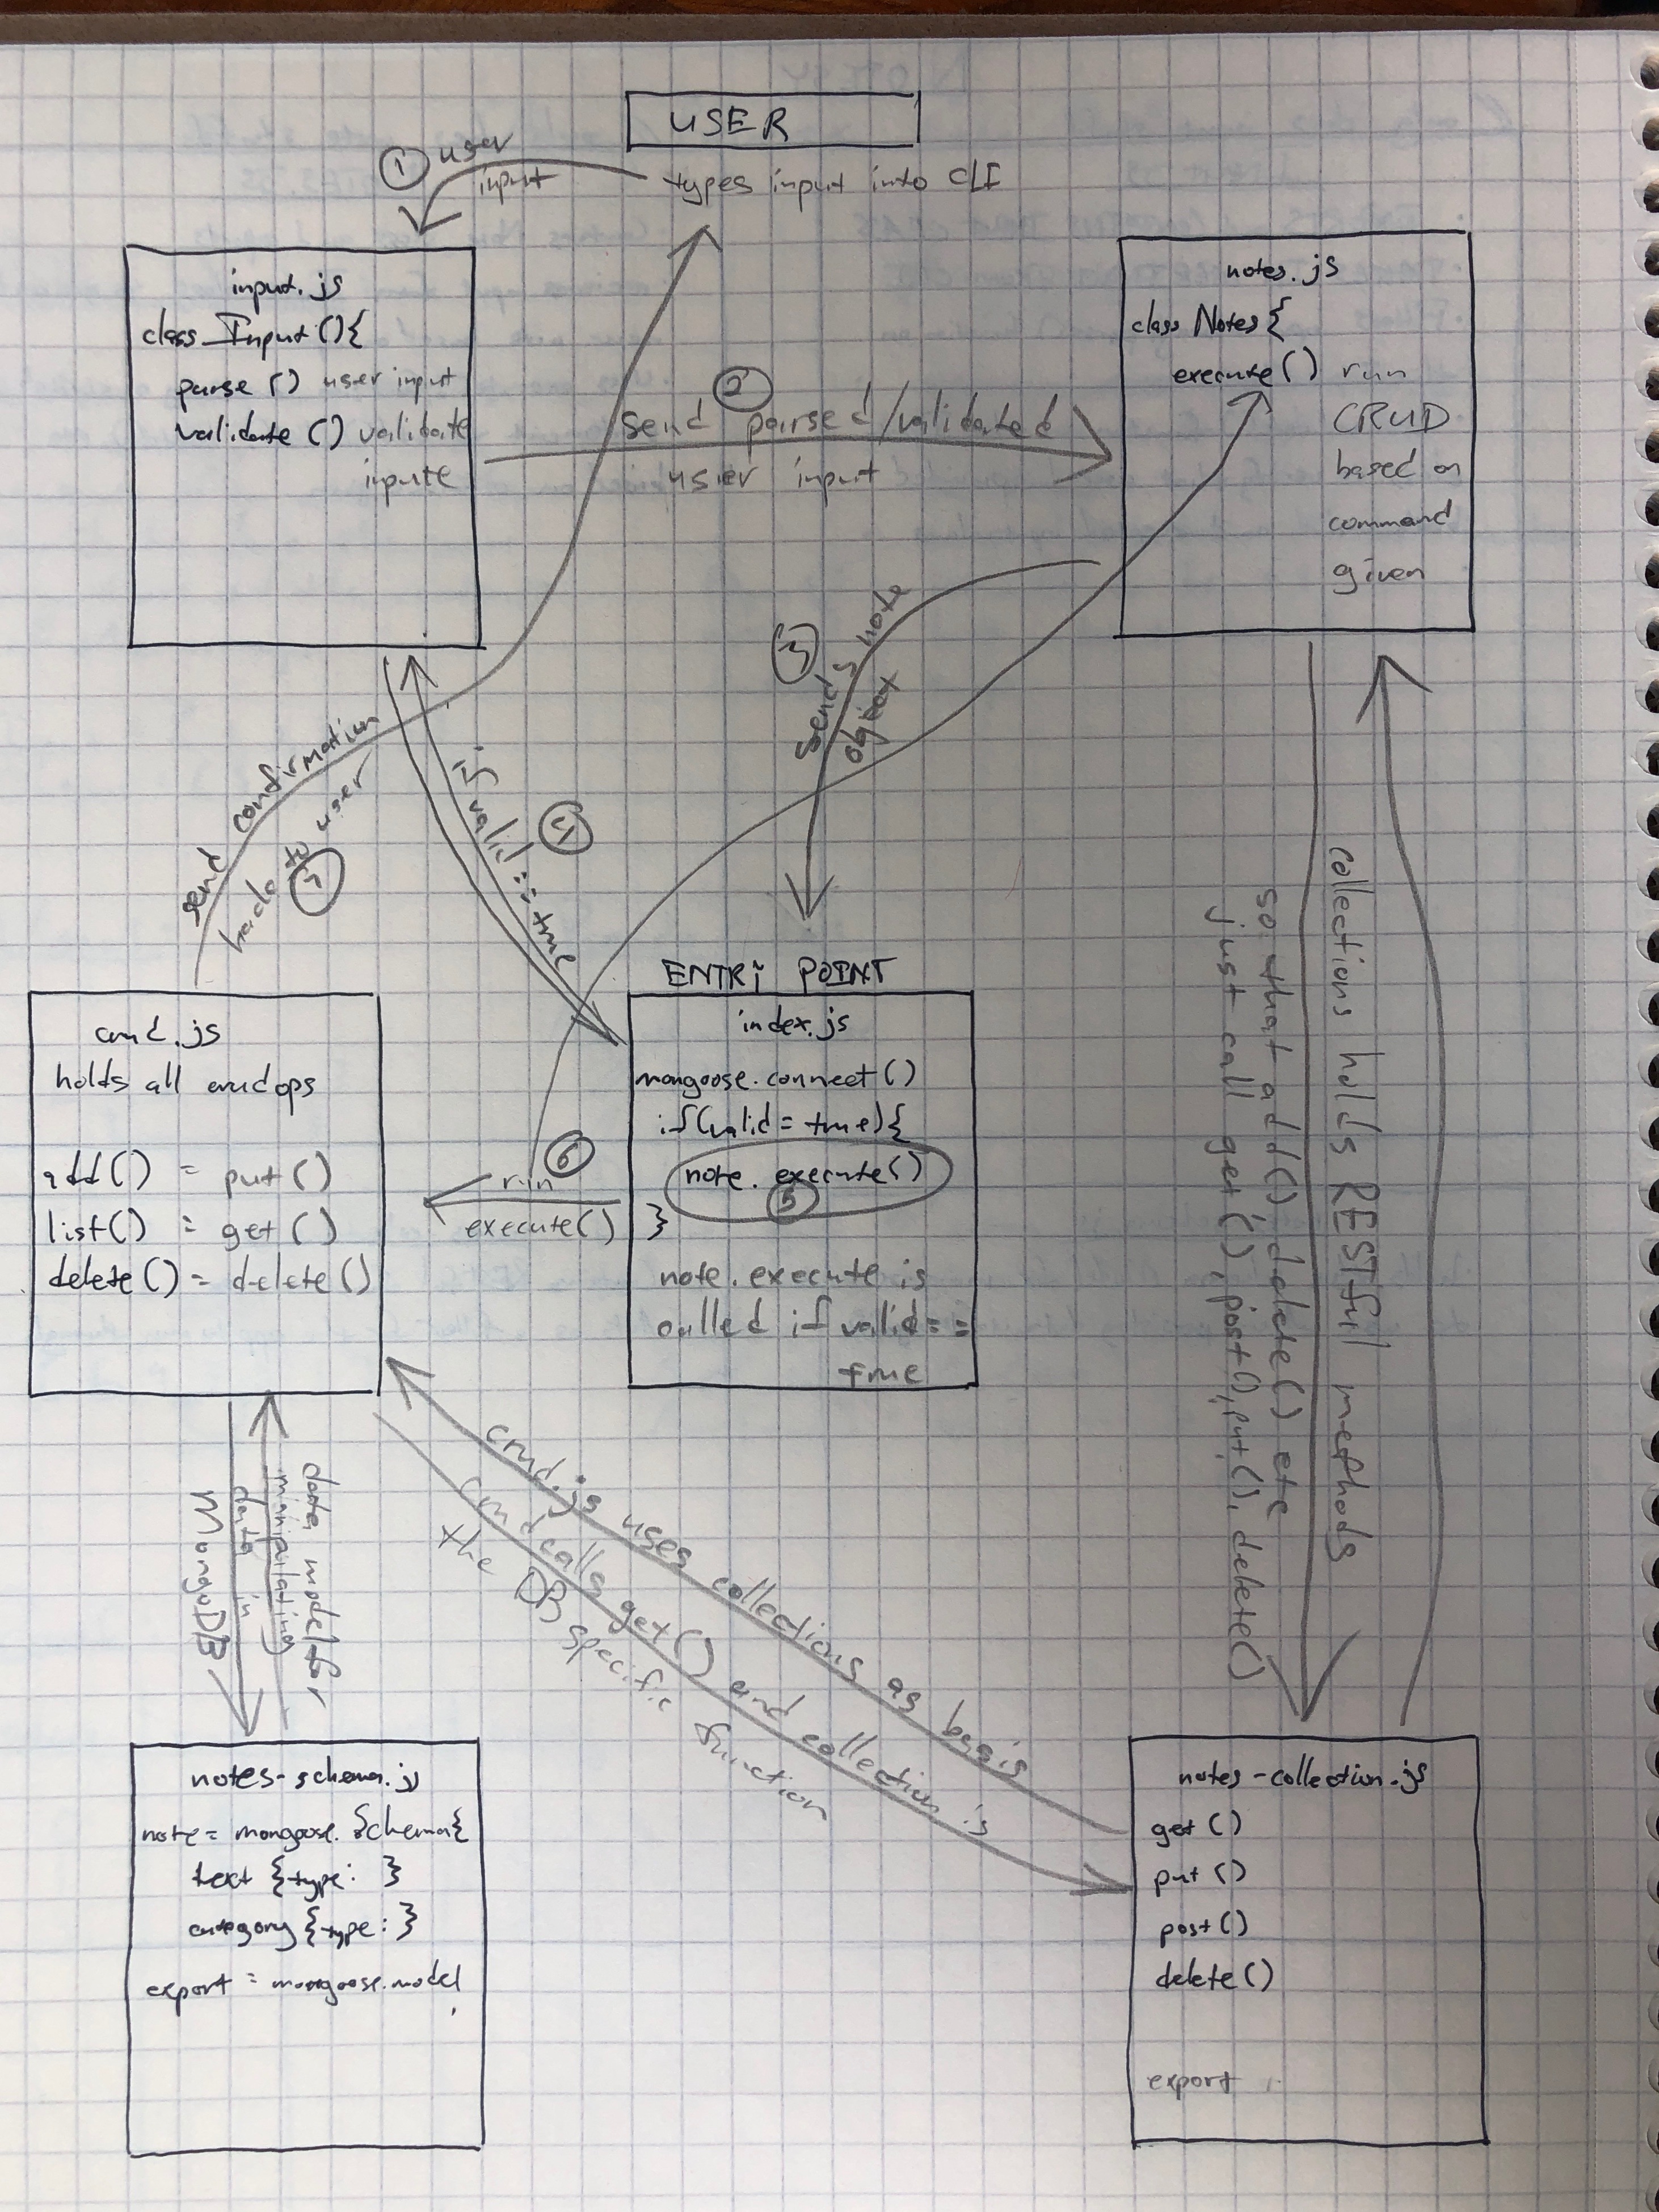 USER
types input into CLI
① user
input
input.js
class Input(){
parse() user input
validate() validate
inpute
②
send parsed/validated
user input
notes.js
class Notes{
execute() run
CRUD
based on
command
given
③ sends note
object
④
if valid == true
send confirmation
back to user
⑦
ENTRY POINT
index.js
mongoose.connect()
if(valid = true){
note.execute()
⑤
}
note.execute is
called if valid ==
true
⑥
run
execute()
crud.js
holds all crudops
add() = put()
list() = get()
delete() = delete()
collections holds RESTful methods
so that add() delete() etc
just call get(), post(), put(), delete()
crud.js uses collections as basis
crud calls get() and collection is
the DB specific function
data model for
manipulating
data in
MongoDB
notes-schema.js
note = mongoose.Schema{
text {type: }
category {type: }
export = mongoose.model
notes-collection.js
get()
put()
post()
delete()
export